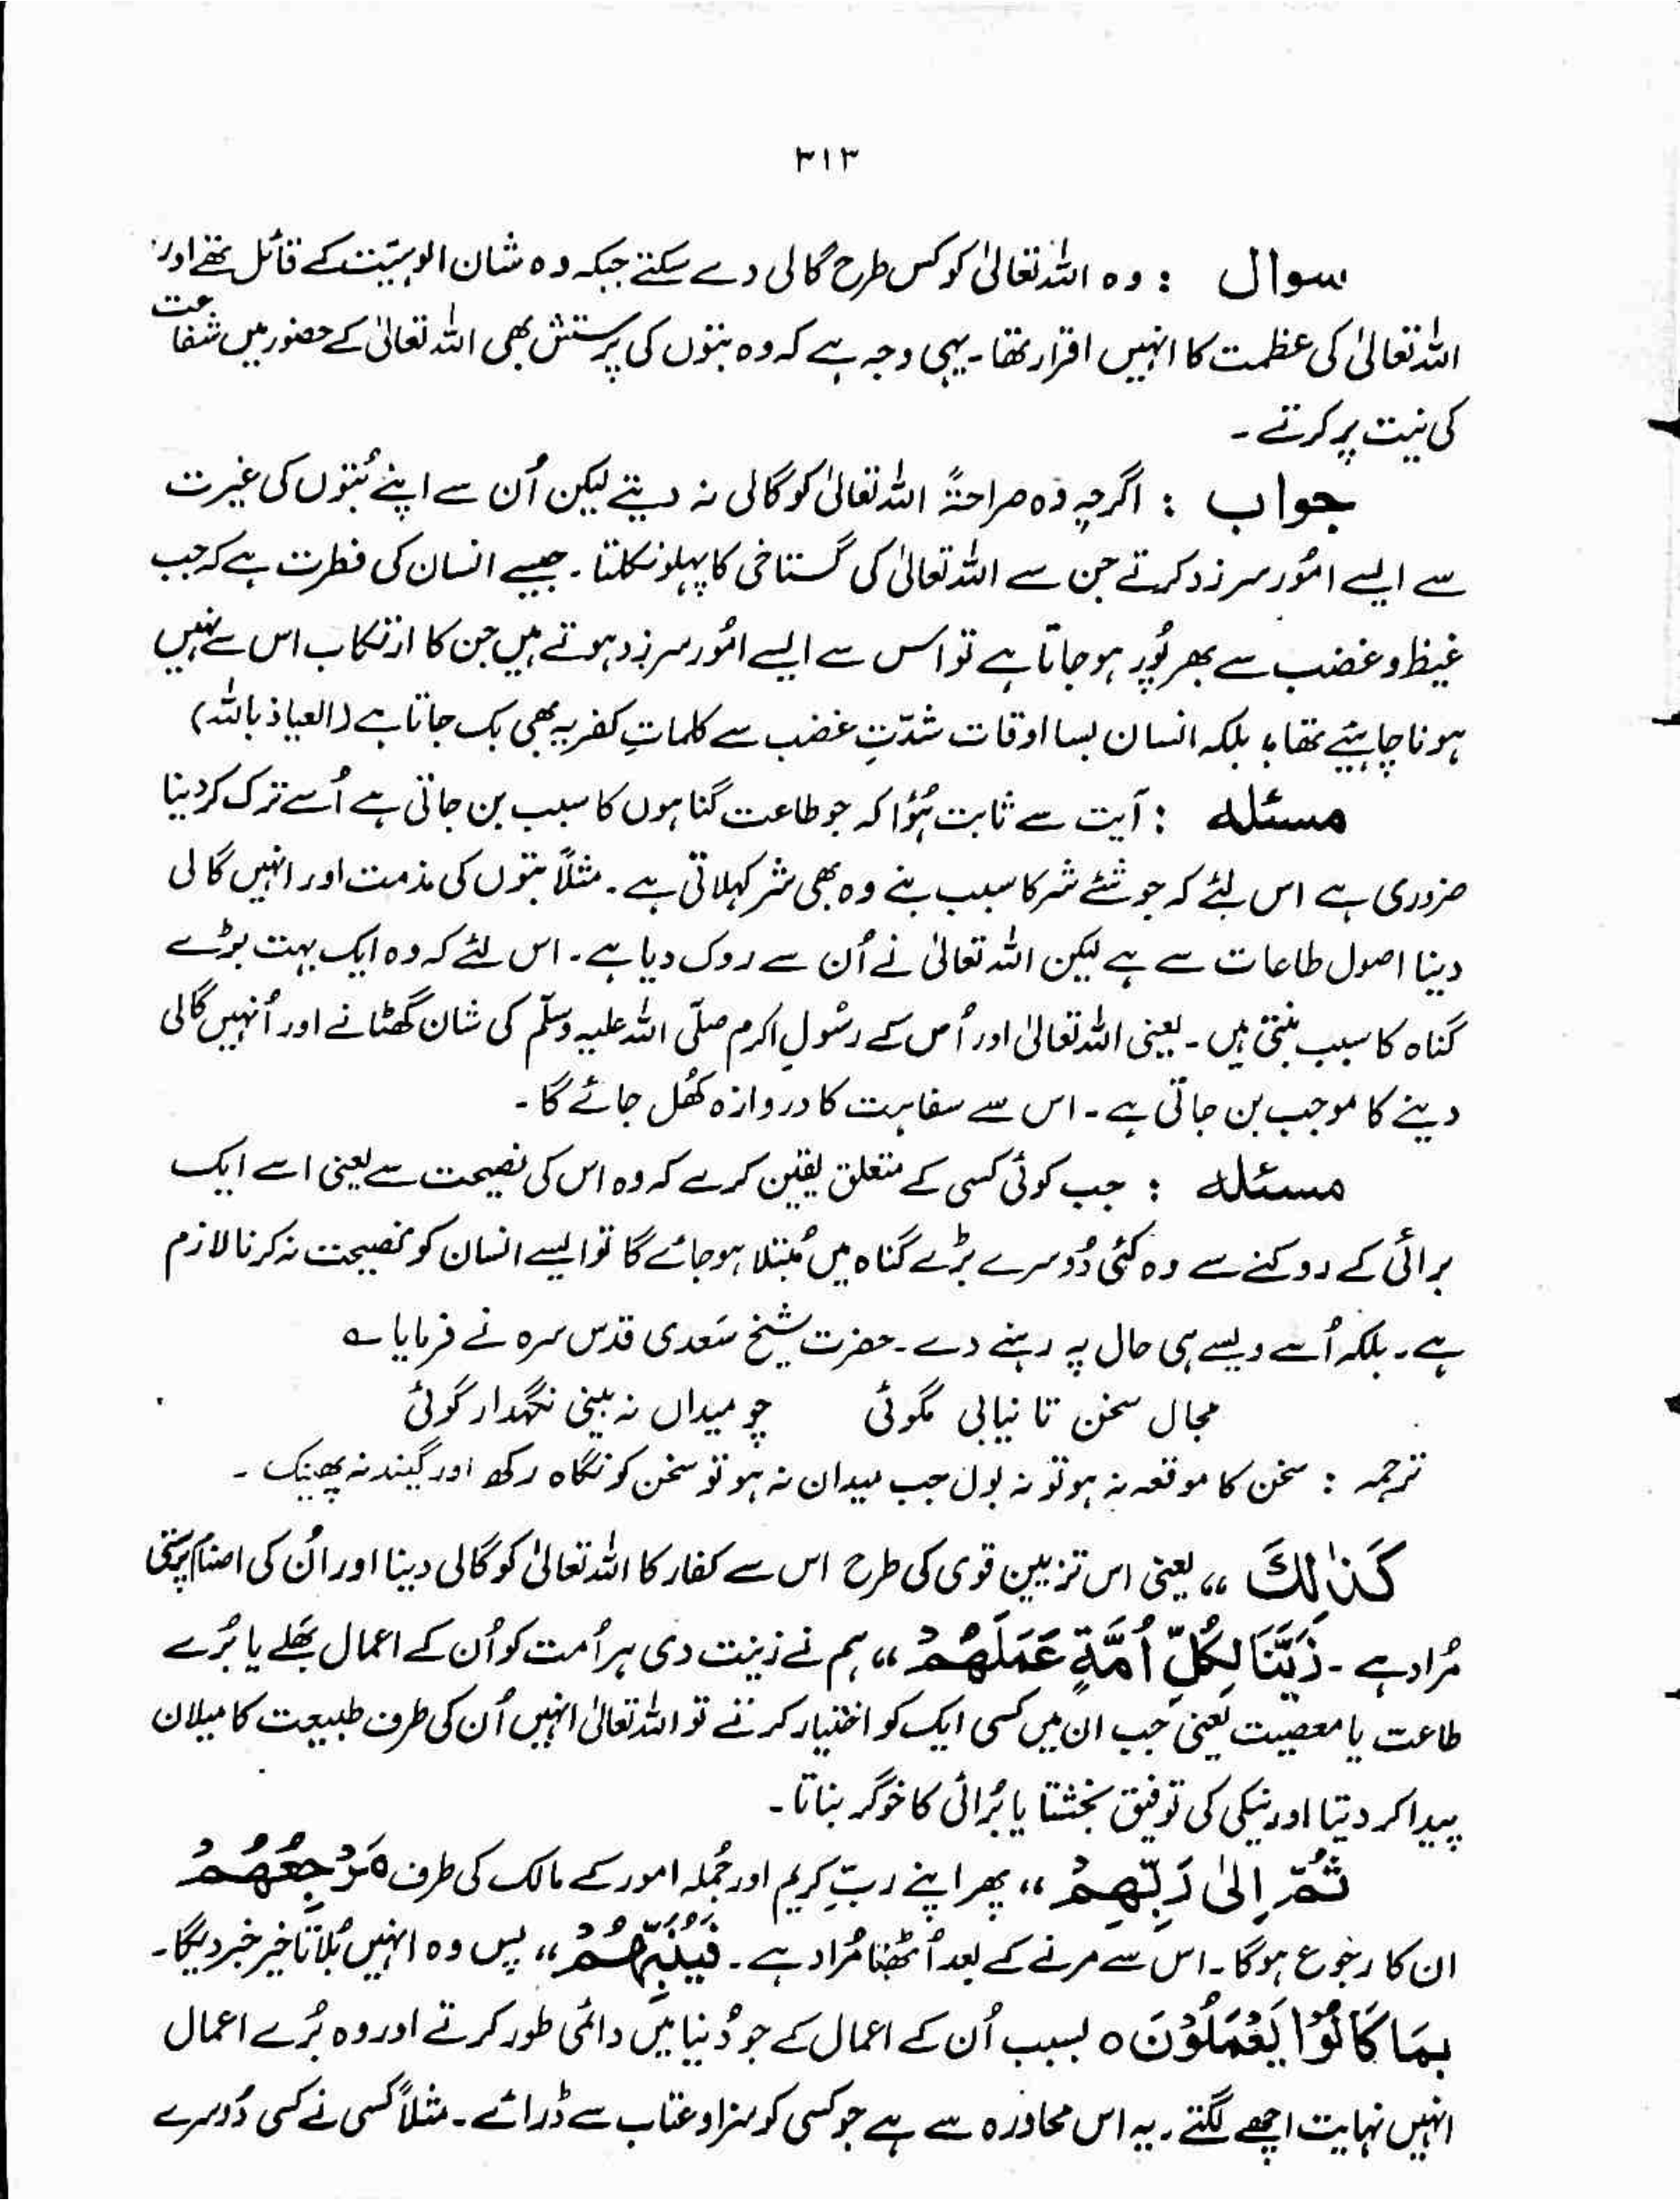 ۳۱۳
سوال : وہ اللہ تعالیٰ کو کس طرح گالی دے سکتے جبکہ وہ شان الوہیّت کے قائل تھے اور
اللہ تعالیٰ کی عظمت کا انہیں اقرار تھا۔ یہی وجہ ہے کہ وہ بتوں کی پرستش بھی اللہ تعالیٰ کے حضور میں شفاعت
کی نیت پر کرتے ۔
جواب : اگرچہ وہ صراحتہً اللہ تعالیٰ کو گالی نہ دیتے لیکن اُن سے اپنے بُتوں کی غیرت
سے ایسے امُور سرزد کرتے جن سے اللہ تعالیٰ کی گستاخی کا پہلو نکلتا ۔ جیسے انسان کی فطرت ہے کہ جب
غیظ و غضب سے بھر پُور ہو جاتا ہے تو اس سے ایسے امُور سرزد ہوتے ہیں جن کا ارتکاب اس سے نہیں
ہونا چاہئیے تھا، بلکہ انسان بسا اوقات شدّتِ غضب سے کلماتِ کفریہ بھی بک جاتا ہے (العیاذ باللہ)
مسئلہ : آیت سے ثابت ہُؤا کہ جو طاعت گناہوں کا سبب بن جاتی ہے اُسے ترک کر دینا
ضروری ہے اس لئے کہ جو شئے شر کا سبب بنے وہ بھی شر کہلاتی ہے ۔ مثلاً بتوں کی مذمت اور انہیں گالی
دینا اصول طاعات سے ہے لیکن اللہ تعالیٰ نے اُن سے روک دیا ہے ۔ اس لئے کہ وہ ایک بہت بڑے
گناہ کا سبب بنتی ہیں ۔ یعنی اللہ تعالیٰ اور اُس کے رسُولِ اکرم صلّی اللہ علیہ وسلّم کی شان گھٹانے اور اُنہیں گالی
دینے کا موجب بن جاتی ہے ۔ اس سے سفاہت کا دروازہ کھُل جائے گا ۔
مسئلہ : جب کوئی کسی کے متعلق یقین کرے کہ وہ اس کی نصیحت سے یعنی اسے ایک
برائی کے روکنے سے وہ کئی دُوسرے بڑے گناہ میں مُبتلا ہو جائے گا تو ایسے انسان کو نصیحت نہ کرنا لازم
ہے ۔ بلکہ اُسے ویسے ہی حال پہ رہنے دے ۔ حضرت شیخ سَعدی قدس سرہ نے فرمایا ؎
مجال سخن تا نیابی مگوئی چو میداں نہ بینی نگہدار گوئی
ترجمہ : سخن کا موقعہ نہ ہو تو نہ بول جب میدان نہ ہو تو سخن کو نگاہ رکھ اور گیند نہ پھینک ۔
کَذٰلِکَ ،، یعنی اس تزیین قوی کی طرح اس سے کفار کا اللہ تعالیٰ کو گالی دینا اور اُن کی اصنام پرستی
مُراد ہے ۔ زَیَّنَّا لِکُلِّ اُمَّۃٍ عَمَلَھُمْ ،، ہم نے زینت دی ہر اُمت کو اُن کے اعمال بھَلے یا بُرے
طاعت یا معصیت یعنی جب ان میں کسی ایک کو اختیار کرتے تو اللہ تعالیٰ انہیں اُن کی طرف طبیعت کا میلان
پیدا کر دیتا اور نیکی کی توفیق بخشتا یا بُرائی کا خوگر بناتا ۔
ثُمَّ اِلٰی رَبِّھِمْ ،، پھر اپنے ربِّ کریم اور جُملہ امور کے مالک کی طرف مَرْجِعُھُمْ
ان کا رجوع ہو گا ۔ اس سے مرنے کے بعد اُٹھنا مُراد ہے ۔ فَیُنَبِّئُھُمْ ،، پس وہ انہیں بُلا تاخیر خبر دیگا۔
بِمَا کَانُوْا یَعْمَلُوْنَ ہ بسبب اُن کے اعمال کے جو دُنیا میں دائمی طور کرتے اور وہ بُرے اعمال
انہیں نہایت اچھے لگتے ۔ یہ اس محاورہ سے ہے جو کسی کو سزا و عتاب سے ڈرائے ۔ مثلاً کسی نے کسی دُوسرے